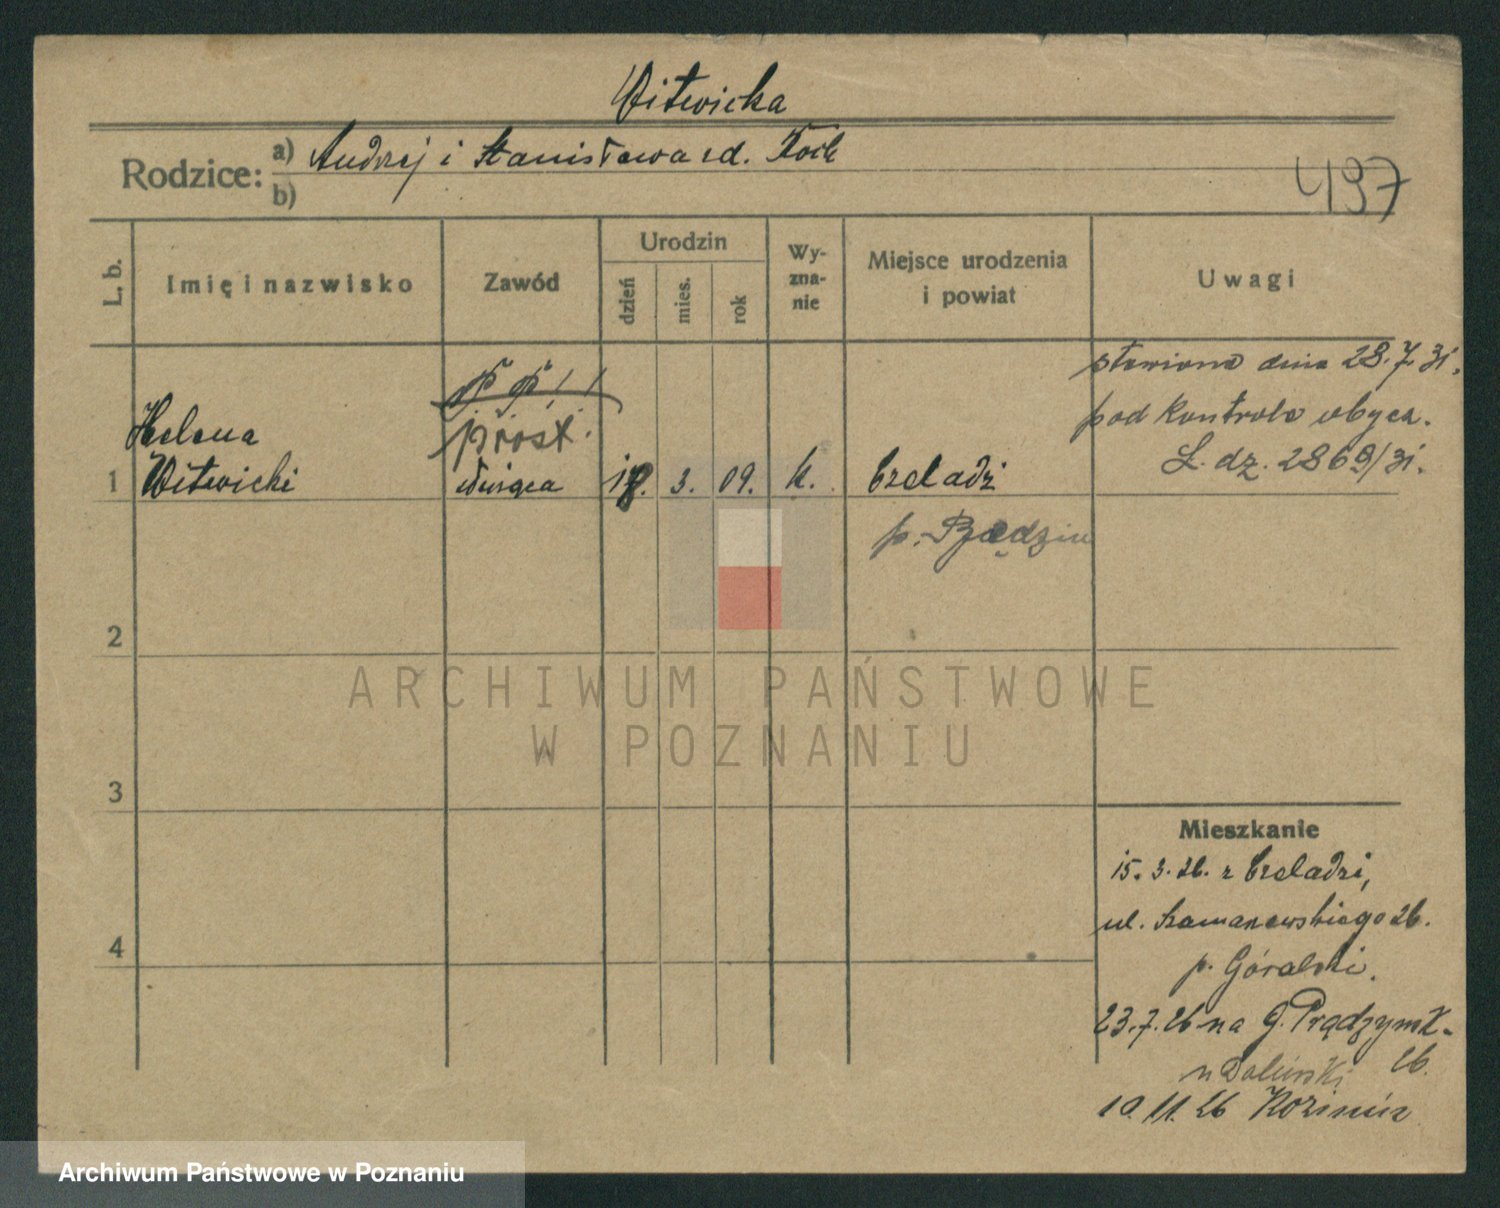 Witwicka
Rodzice: a) Andrzej i Stanisława zd. Koik
b)
497
L. b. Imię i nazwisko Zawód Urodzin dzień mies. rok Wy-zna-nie Miejsce urodzenia i powiat Uwagi
stawiona dnia 28.7.31.
pod kontrolę obycz.
L. dz. 2869/31.
P P ! !
prost.
1 Helena
Witwicki służąca 18. 3. 09. k. Czeladź
p. Będzin
2
3
4
Mieszkanie
15. 3. 26. z Czeladzi,
ul. Szamarzewskiego 26.
p. Góralski.
23.7.26 na G. Prądzyńsk.
26.
u Doliński
10.11.26 Koźmin
ARCHIWUM PAŃSTWOWE
W POZNANIU
Archiwum Państwowe w Poznaniu